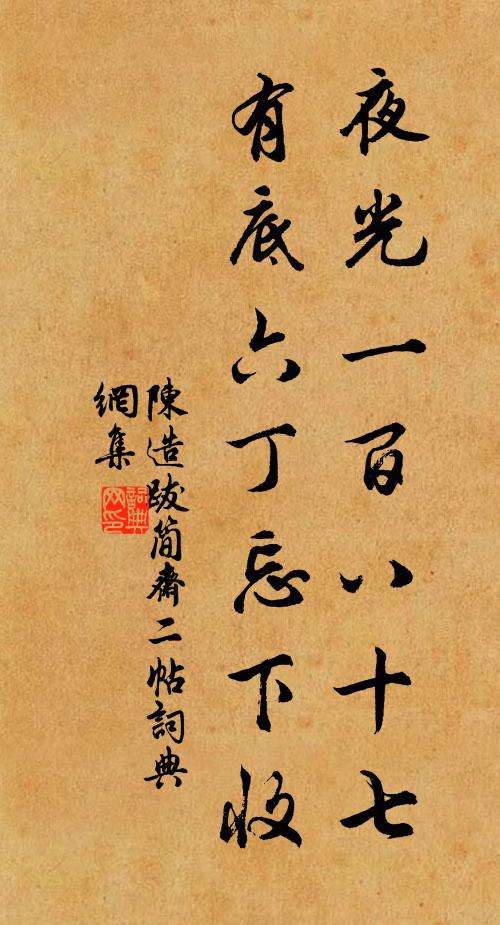 夜光一百八十七
有底六丁忘下收
陳造跋簡齋二帖詞典
網集
詞典
网印